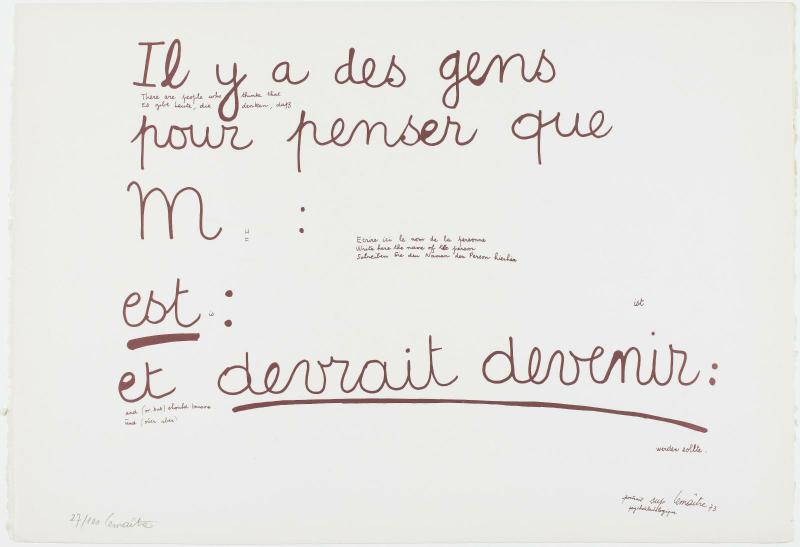 Il y a des gens
There are people who thinks that
Es gibt Leute, die denken, daß
pour penser que
M :
Ecrire ici le nom de la personne
Write here the name of the person
Schreiben Sie den Namen der Person hierhin
est :
is
ist
et devrait devenir :
and (or but) should become
und (oder aber)
werden sollte.
sup lemaître 73
27/100 lemaître